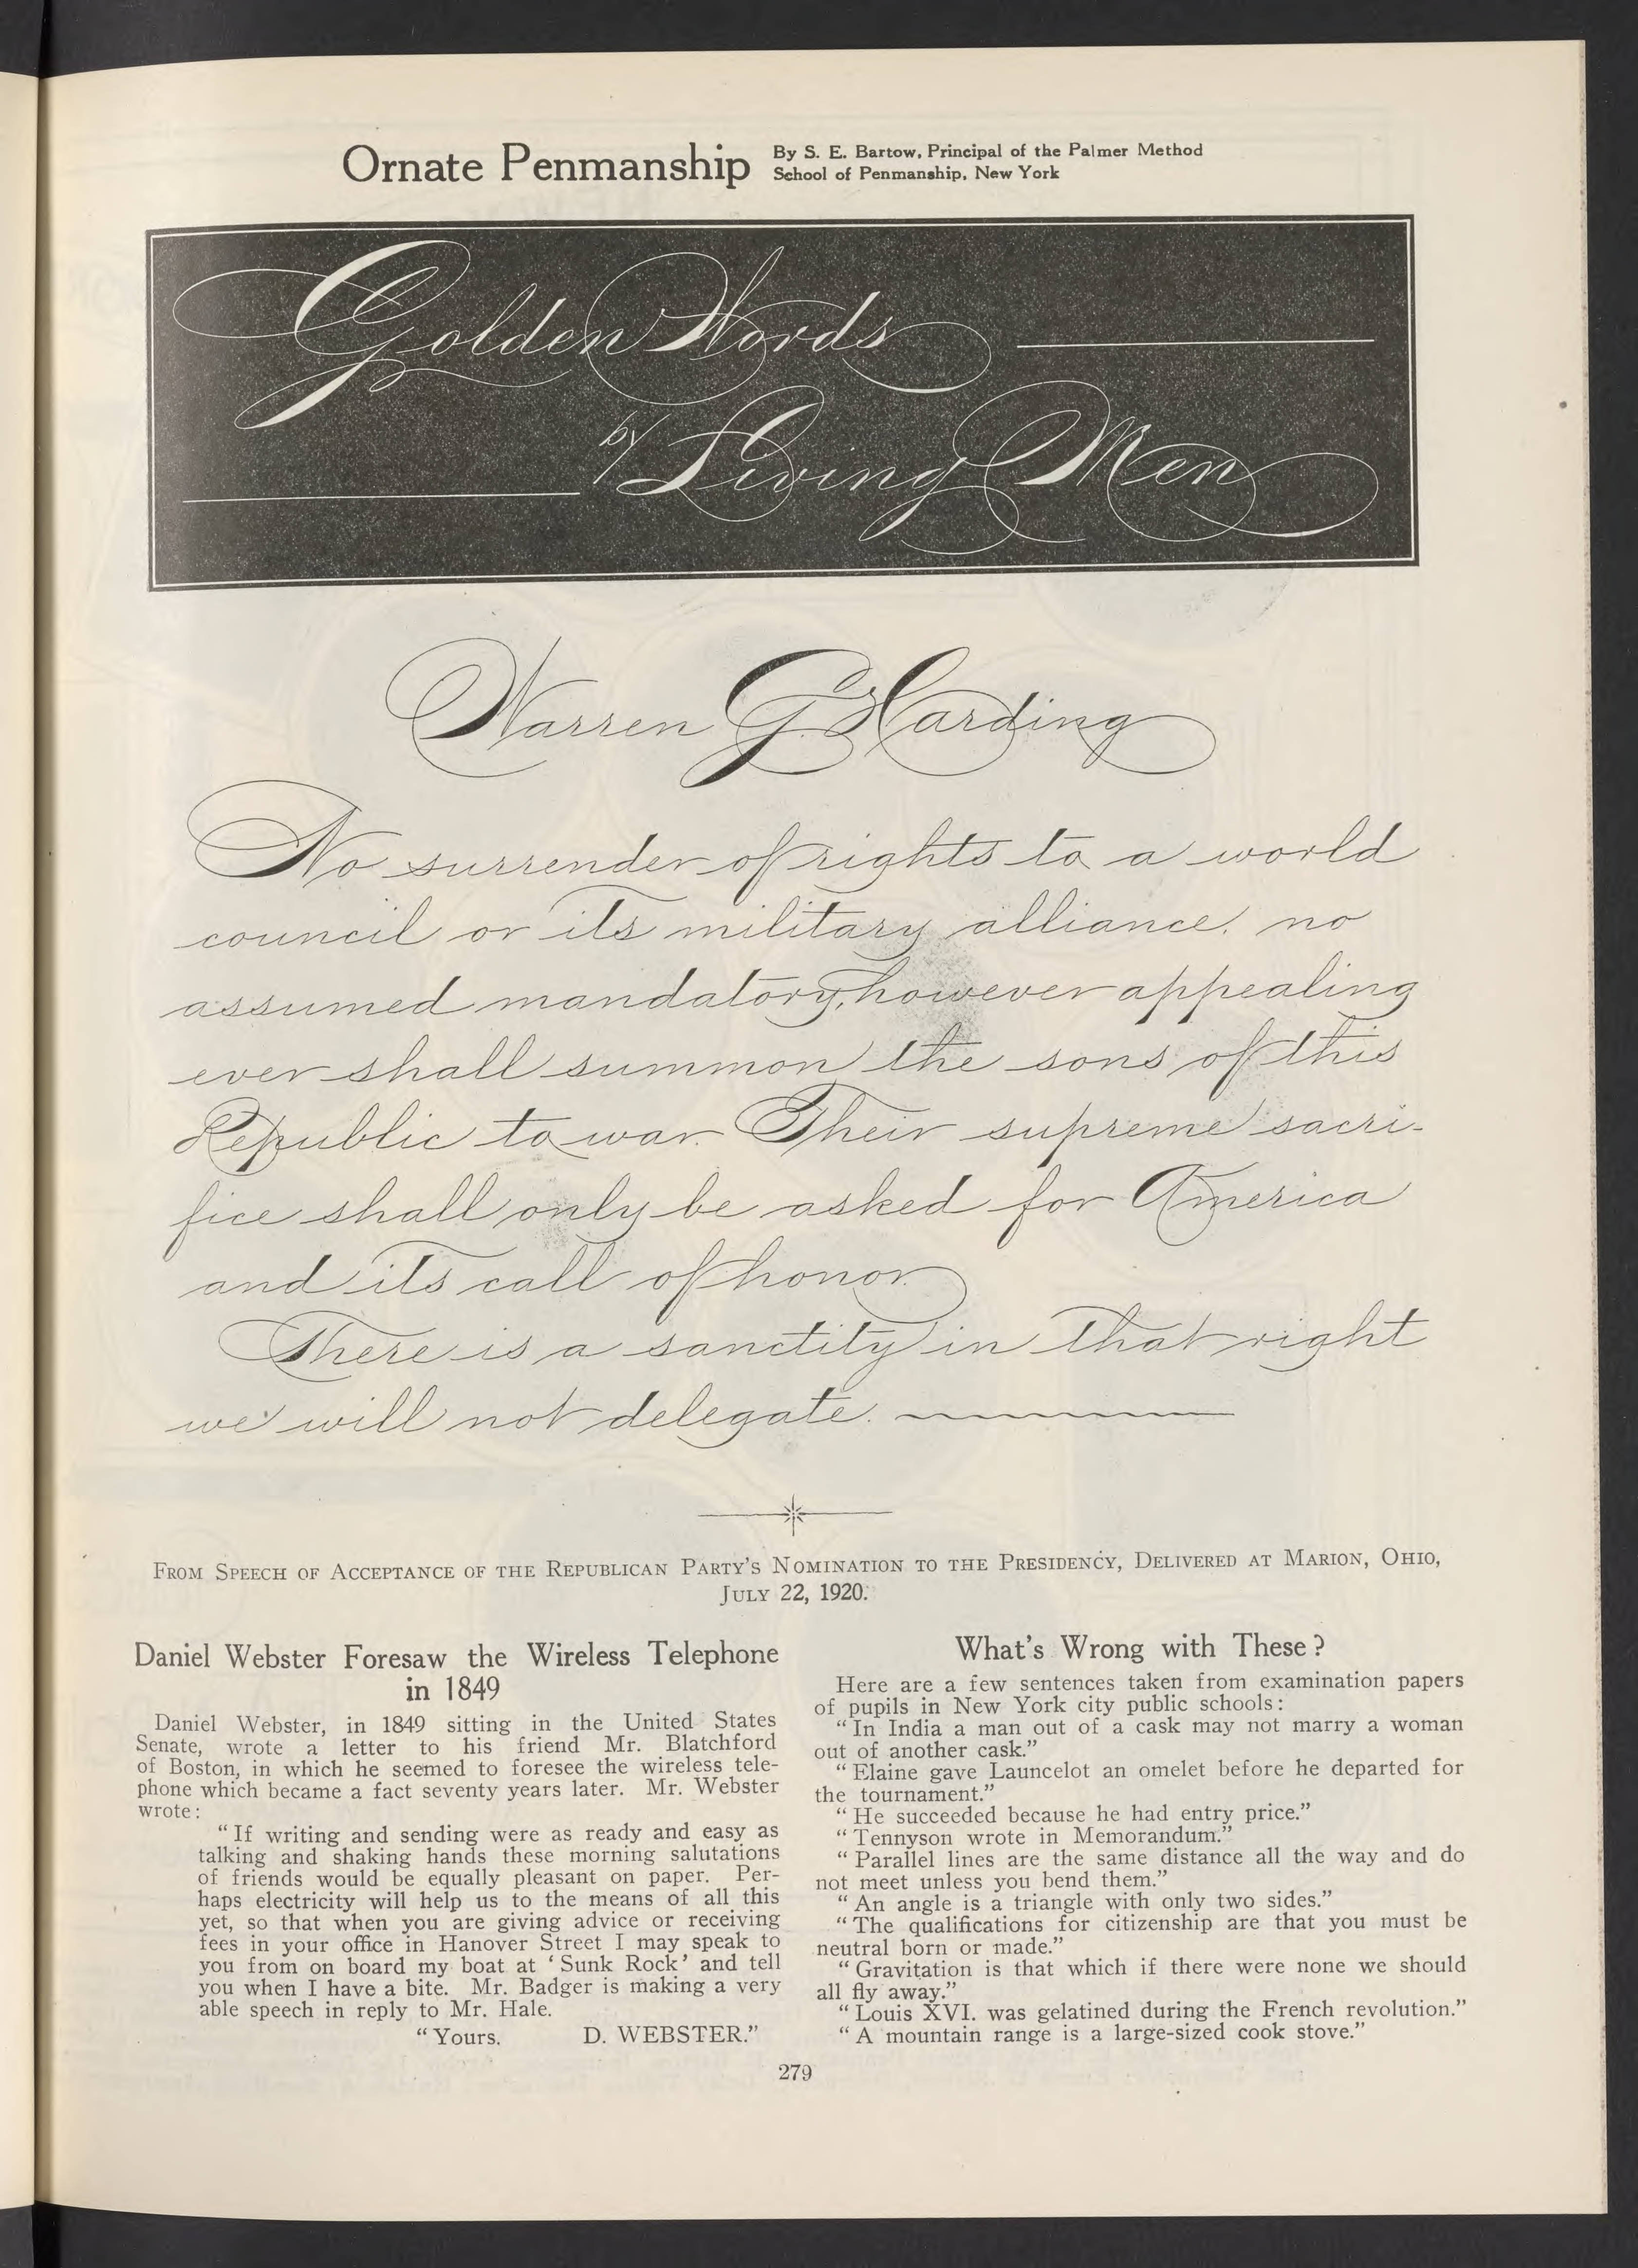 Ornate Penmanship
By S. E. Bartow, Principal of the Palmer Method
School of Penmanship, New York
Golden Words
by Living Men
Warren G. Harding
No surrender of rights to a world
council or its military alliance, no
assumed mandatory, however appealing
ever shall summon the sons of this
Republic to war. Their supreme sacri-
fice shall only be asked for America
and its call of honor.
There is a sanctity in that right
we will not delegate.
From Speech of Acceptance of the Republican Party's Nomination to the Presidency, Delivered at Marion, Ohio,
July 22, 1920.
Daniel Webster Foresaw the Wireless Telephone
in 1849
Daniel Webster, in 1849 sitting in the United States
Senate, wrote a letter to his friend Mr. Blatchford
of Boston, in which he seemed to foresee the wireless tele-
phone which became a fact seventy years later. Mr. Webster
wrote:
"If writing and sending were as ready and easy as
talking and shaking hands these morning salutations
of friends would be equally pleasant on paper. Per-
haps electricity will help us to the means of all this
yet, so that when you are giving advice or receiving
fees in your office in Hanover Street I may speak to
you from on board my boat at 'Sunk Rock' and tell
you when I have a bite. Mr. Badger is making a very
able speech in reply to Mr. Hale.
"Yours. D. WEBSTER."
What's Wrong with These?
Here are a few sentences taken from examination papers
of pupils in New York city public schools:
"In India a man out of a cask may not marry a woman
out of another cask."
"Elaine gave Launcelot an omelet before he departed for
the tournament."
"He succeeded because he had entry price."
"Tennyson wrote in Memorandum."
"Parallel lines are the same distance all the way and do
not meet unless you bend them."
"An angle is a triangle with only two sides."
"The qualifications for citizenship are that you must be
neutral born or made."
"Gravitation is that which if there were none we should
all fly away."
"Louis XVI. was gelatined during the French revolution."
"A mountain range is a large-sized cook stove."
279